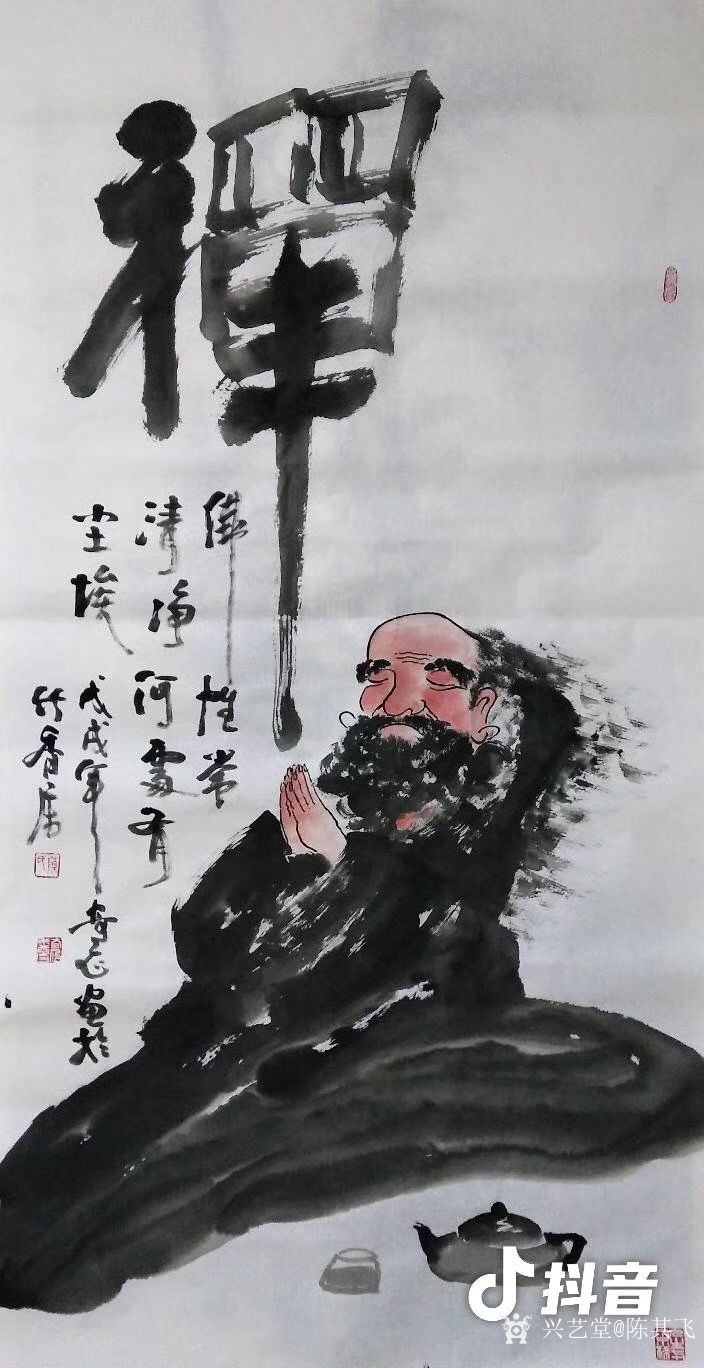 禪
佛性常
清净何處有
尘埃
戊戌年画於
竹香居
抖音
兴艺堂@陈其飞